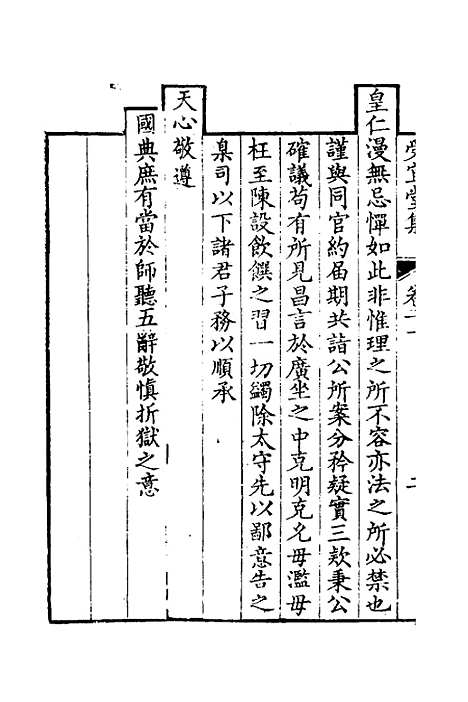 皇仁漫無忌憚如此非惟理之所不容亦法之所必禁也
謹與同官約届期共詣公所案分矜疑實三欵秉公
確議苟有所見昌言於廣坐之中克明克允毋濫毋
枉至陳設飲饌之習一切蠲除太守先以鄙意告之
臬司以下諸君子務以順承
天心敬遵
國典庶有當於師聽五辭敬慎折獄之意